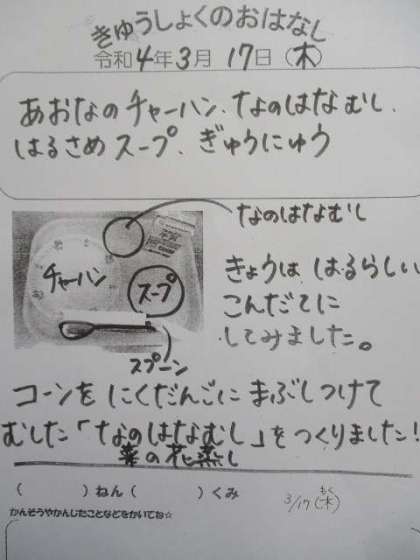 きゅうしょくのおはなし
令和4年3月17日(木)
あおなのチャーハン、なのはなむし、
はるさめスープ、ぎゅうにゅう
なのはなむし
チャーハン
スープ
スプーン
きょうは はるらしい
こんだてに
してみました。
コーンを にくだんごに まぶしつけて
むした「なのはなむし」をつくりました!
菜の花蒸し
( )ねん( )くみ
3/17(木)
もく
かんそうやかんじたことなどをかいてね☆